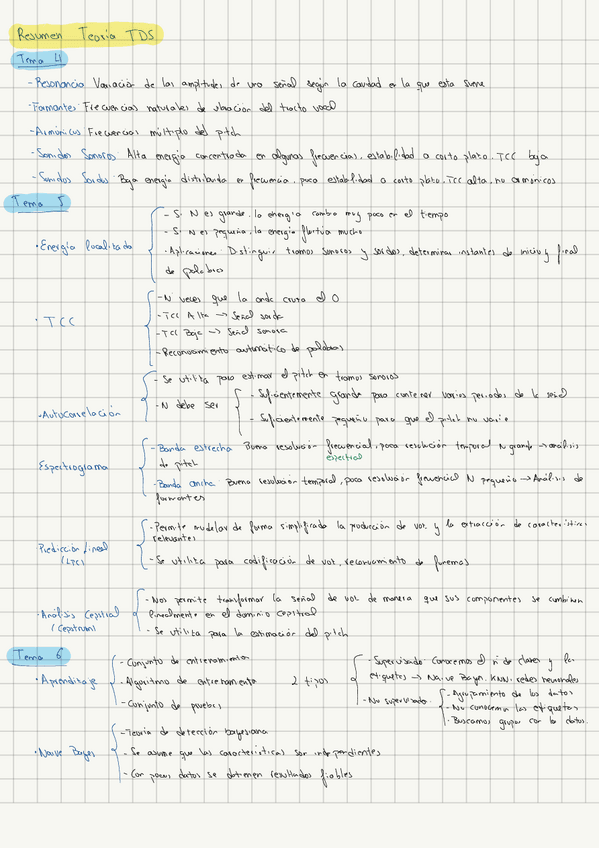 Resumen Teoría TDS
Tema 4
- Resonancia Variación de las amplitudes de una señal según la cavidad en la que esta suene
- Formantes Frecuencias naturales de vibración del tracto vocal
- Armónicos Frecuencias múltiplo del pitch
- Sonidos Sonoros Alta energía concentrada en algunas frecuencias, estabilidad a corto plazo. TCC baja
- Sonidos Sordos Baja energía distribuida en frecuencia, poca estabilidad a corto plazo. TCC alta, no armónicos
Tema 5
· Energía localizada
- Si N es grande, la energía cambia muy poco en el tiempo
- Si N es pequeña, la energía fluctúa mucho
· Aplicaciones Distinguir tramos sonoros y sordos, determinar instantes de inicio y final
de palabras
· TCC
- N veces que la onda cruza el 0
- TCC Alta → Señal sorda
- TCC Baja → Señal sonora
- Reconocimiento automático de palabras
· Autocorrelación
- Se utiliza para estimar el pitch en tramos sonoros
- N debe ser
- Suficientemente grande para contener varios periodos de la señal
- Suficientemente pequeño para que el pitch no varíe
Espectrograma
- Banda estrecha Buena resolución frecuencial, poca resolución temporal N grande → análisis
espectral
de pitch
- Banda ancha Buena resolución temporal, poca resolución frecuencial N pequeño → Análisis de
formantes
Predicción lineal
(LPC)
- Permite modelar de forma simplificada la producción de voz y la extracción de características
relevantes
- Se utiliza para codificación de voz, reconocimiento de fonemas
· Análisis Cepstral
(Cepstrum)
- Nos permite transformar la señal de voz de manera que sus componentes se combinan
linealmente en el dominio cepstral
- Se utiliza para la estimación del pitch
Tema 6
· Aprendizaje
- Conjunto de entrenamiento
- Algoritmo de entrenamiento
- Conjunto de pruebas
2 tipos
- Supervisado Conocemos el nº de clases y las
etiquetas → Naive Bayes, KNN, redes neuronales
- No supervisado
- Agrupamiento de los datos
- No conocemos las etiquetas
· Buscamos grupos con los datos.
· Naive Bayes
- Teoría de detección bayesiana
- Se asume que las características son independientes
- Con pocos datos se obtienen resultados fiables